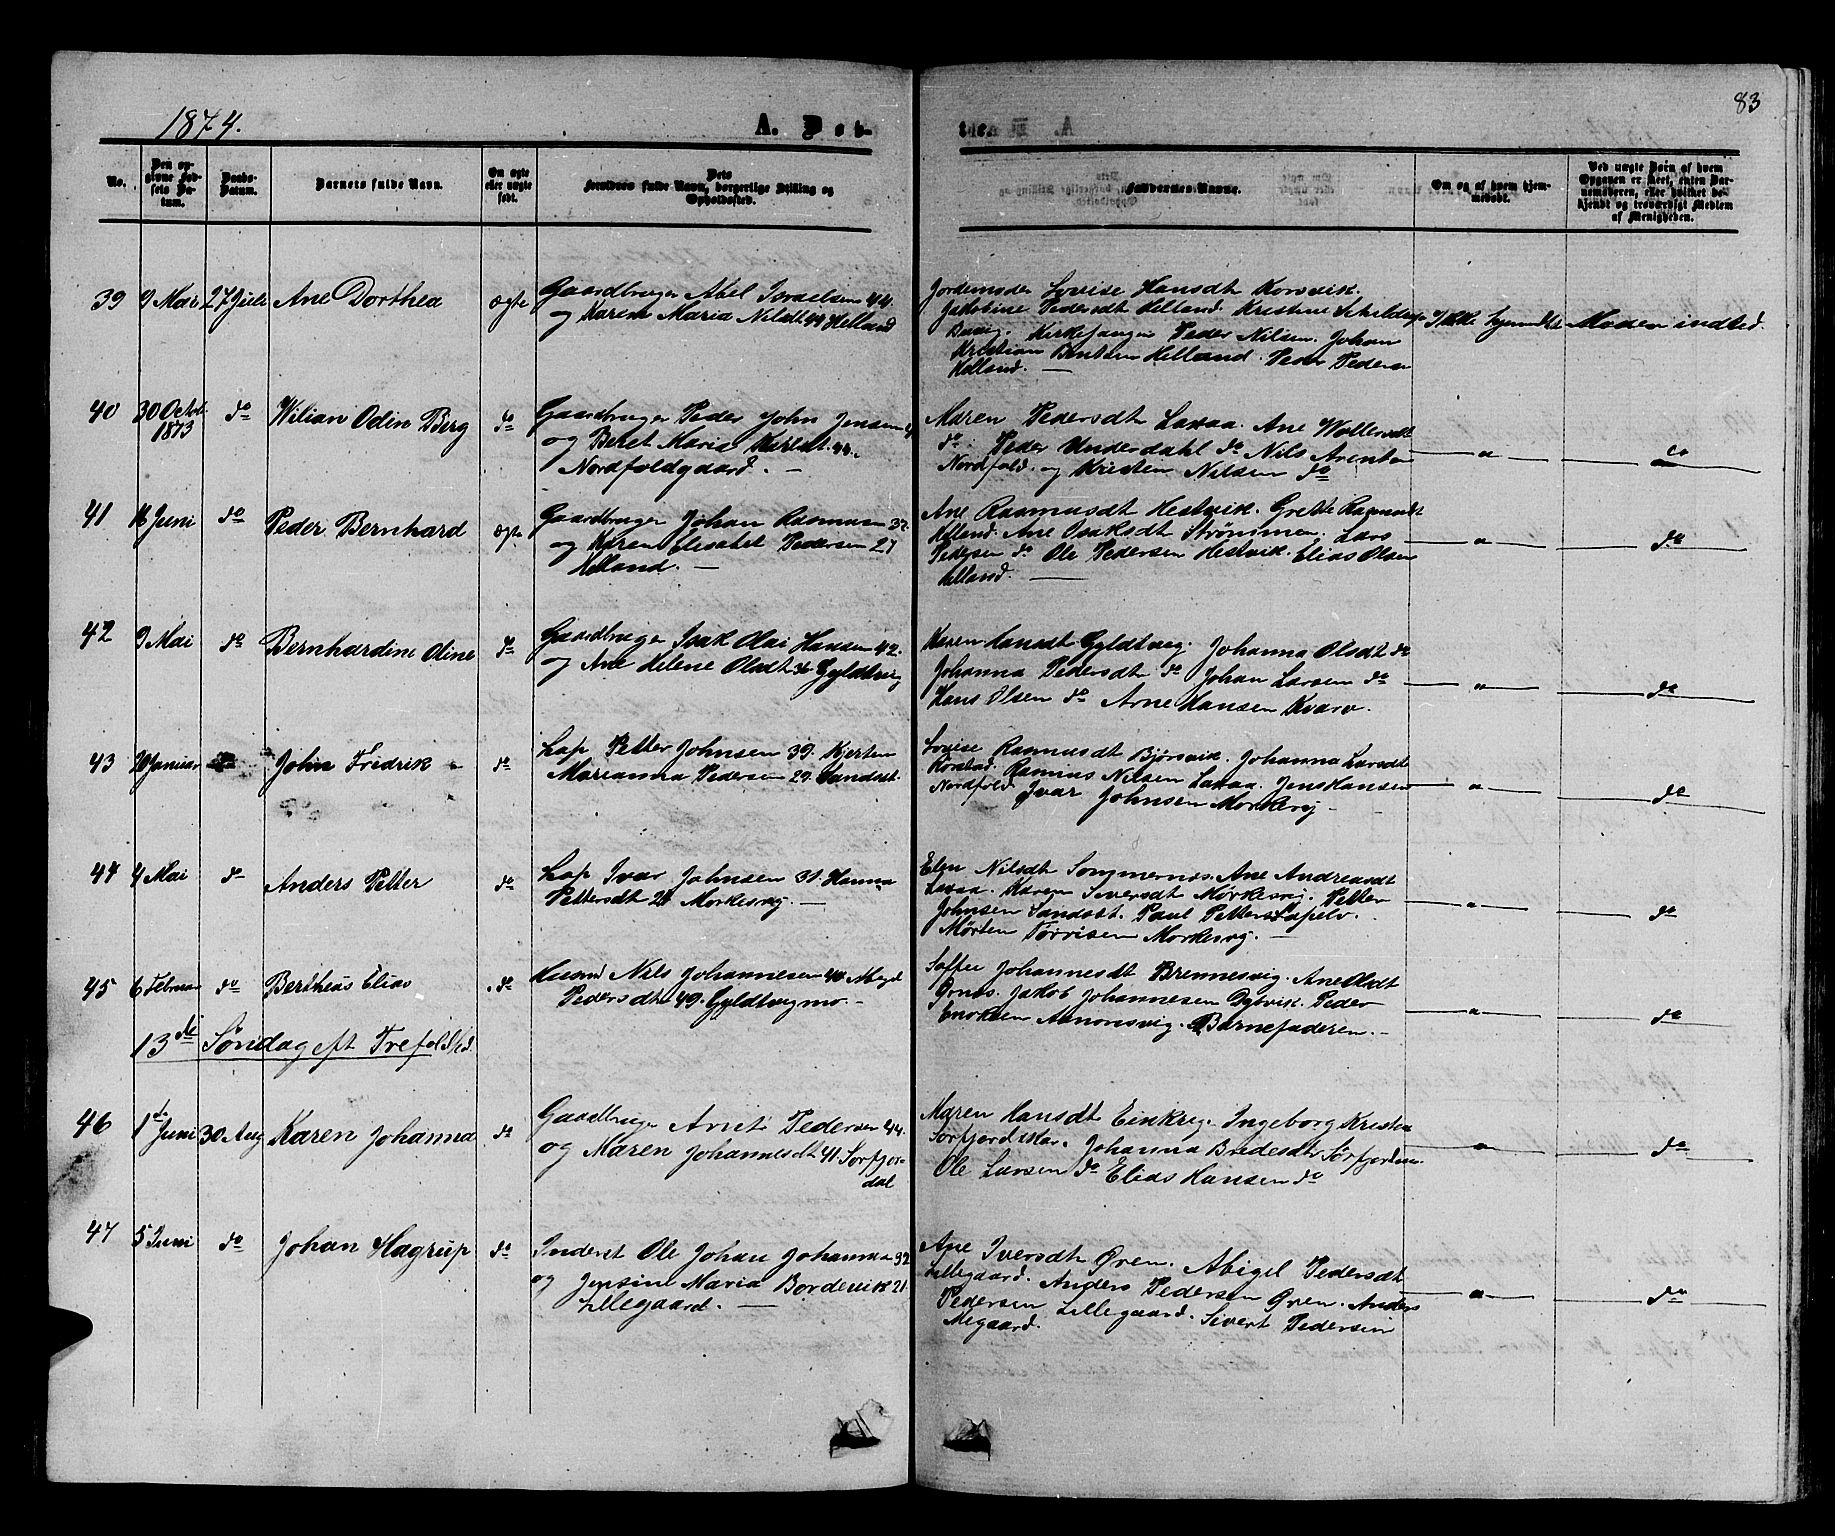 1874.
A. Døb-
te.
83
No.
Den op-
givne Fød-
sels Da-
tum.
Daabs-
Datum.
Barnets fulde Navn.
Om ægte
eller uægte
født.
Dets
Forældres fulde Navn, borgerlige Stilling og
Opholdssted.
Faddernes Navne.
Om og af hvem hjem-
medøbt.
Ved uægte Børn af hvem
Opgaven er skeet, enten Bar-
nemoderen, eller hvilket be-
kjendt og troværdigt Medlem
af Menigheden.
39 9 Mai 27 Juli Ane Dorthea ægte
Gaardbruger Abel Israelsen 44.
og Karen Maria Nilsdt 44 Helland
Jordemoder Lovise Hansdt Korsvik.
Jakobine Pedersdt Helland. Kristine Schelderup
Buvig. Kirkesanger Peder Nilsen. Johan
Kristian Bentsen Helland. Peder Pedersen
Helland. —
Ikke hjemdøbt Moderen indted.
40 30 Octob. 1873 do Wilian Odin Berg do
Gaardbruger Peder John Jensen
og Beret Maria Karlsdt 44.
Nordfoldgaard. —
Maren Pedersdt Laxaa. Ane Wollersdt
do. Peder Underdahl do Nils Arentsen
Nordfold. og Kristen Nilsen do
— " — — do —
41 16 Juni do Peder Bernhard ægte
Gaardbruger Johan Rasmusen 37.
og Karen Elisabet Pedersen 27
Helland. —
Ane Rasmusdt Hestvik. Grette Rasmusdt
Helland. Ane Isaksdt Strømmen. Lars
Pedersen do Ole Pedersen Hestvik. Elias Olsen
Helland. —
— " — — do —
42 9 Mai do Bernhardine Oline do
Gaardbruger Isak Olai Hansen 42.
og Ane Helene Olsdt 36 Gyldtvig
Karen Hansdt Gyldtvig. Johanna Olsdt do
Johanna Pedersdt do Johan Larsen do
Hans Olsen do Arne Hansen Kvarv.
— " — — do —
43 20 Januar do John Fredrik do
Lap Petter Johnsen 39. Kjersten
Marianna Pedersen 29. Sandset.
Lovise Rasmusdt Bjørsvik. Johanna Larsdt
Rørstad. Rasmus Nilsen Laxaa. Jens Hansen
Nordfold. Ivar Johnsen Mørkesvig —
— " — — do —
44 4 Mai do Anders Petter do
Lap Ivar Johnsen 31. Hanna
Pettersdt 28 Mørkesvig. —
Elen Nilsdt Sommernes. Ane Andreasdt
Laxaa. Maren Siversdt Mørkesvig. Petter
Johnsen Sandset. Paul Petters Lapelv.
Mørten Torrisen Mørkesvig. —
— " — — do —
45 6 Februar do Bertheus Elias do
Husmd Nils Johannesen 40. Abigel
Pedersdt 49. Gyldtvigmo —
Soffie Johannesdt Brennesvig. Ane Olsdt
Ørnes. Jakob Johannesen Dybvik. Peder
Enoksen Aanonsvig. Barnefaderen. —
— " — — do —
13de Søndag eft Trefoldhd.
46 1de Juni 30 Aug Karen Johanna do
Gaardbruger Arnt Pedersen 44.
og Maren Johannesdt 41. Sørfjor-
dal
Maren Hansdt Einkrig. Ingeborg Kristen
Sørfjord. Johanna Bredesdt Sørfjorden.
Ole Larsen do Elias Hansen do
— " — — do —
47 5 Juni do Johan Hagrup do
Inderst Ole Johan Johannsen 32
og Jensine Maria Borderik 21
Lillegaard. —
Ane Iversdt Øren. Abigel Pedersdt
Lillegaard. Anders Pedersen Øren. Anders
Pedersen Lillegaard. Sivert Pedersen
Megaard.
— " — — do —